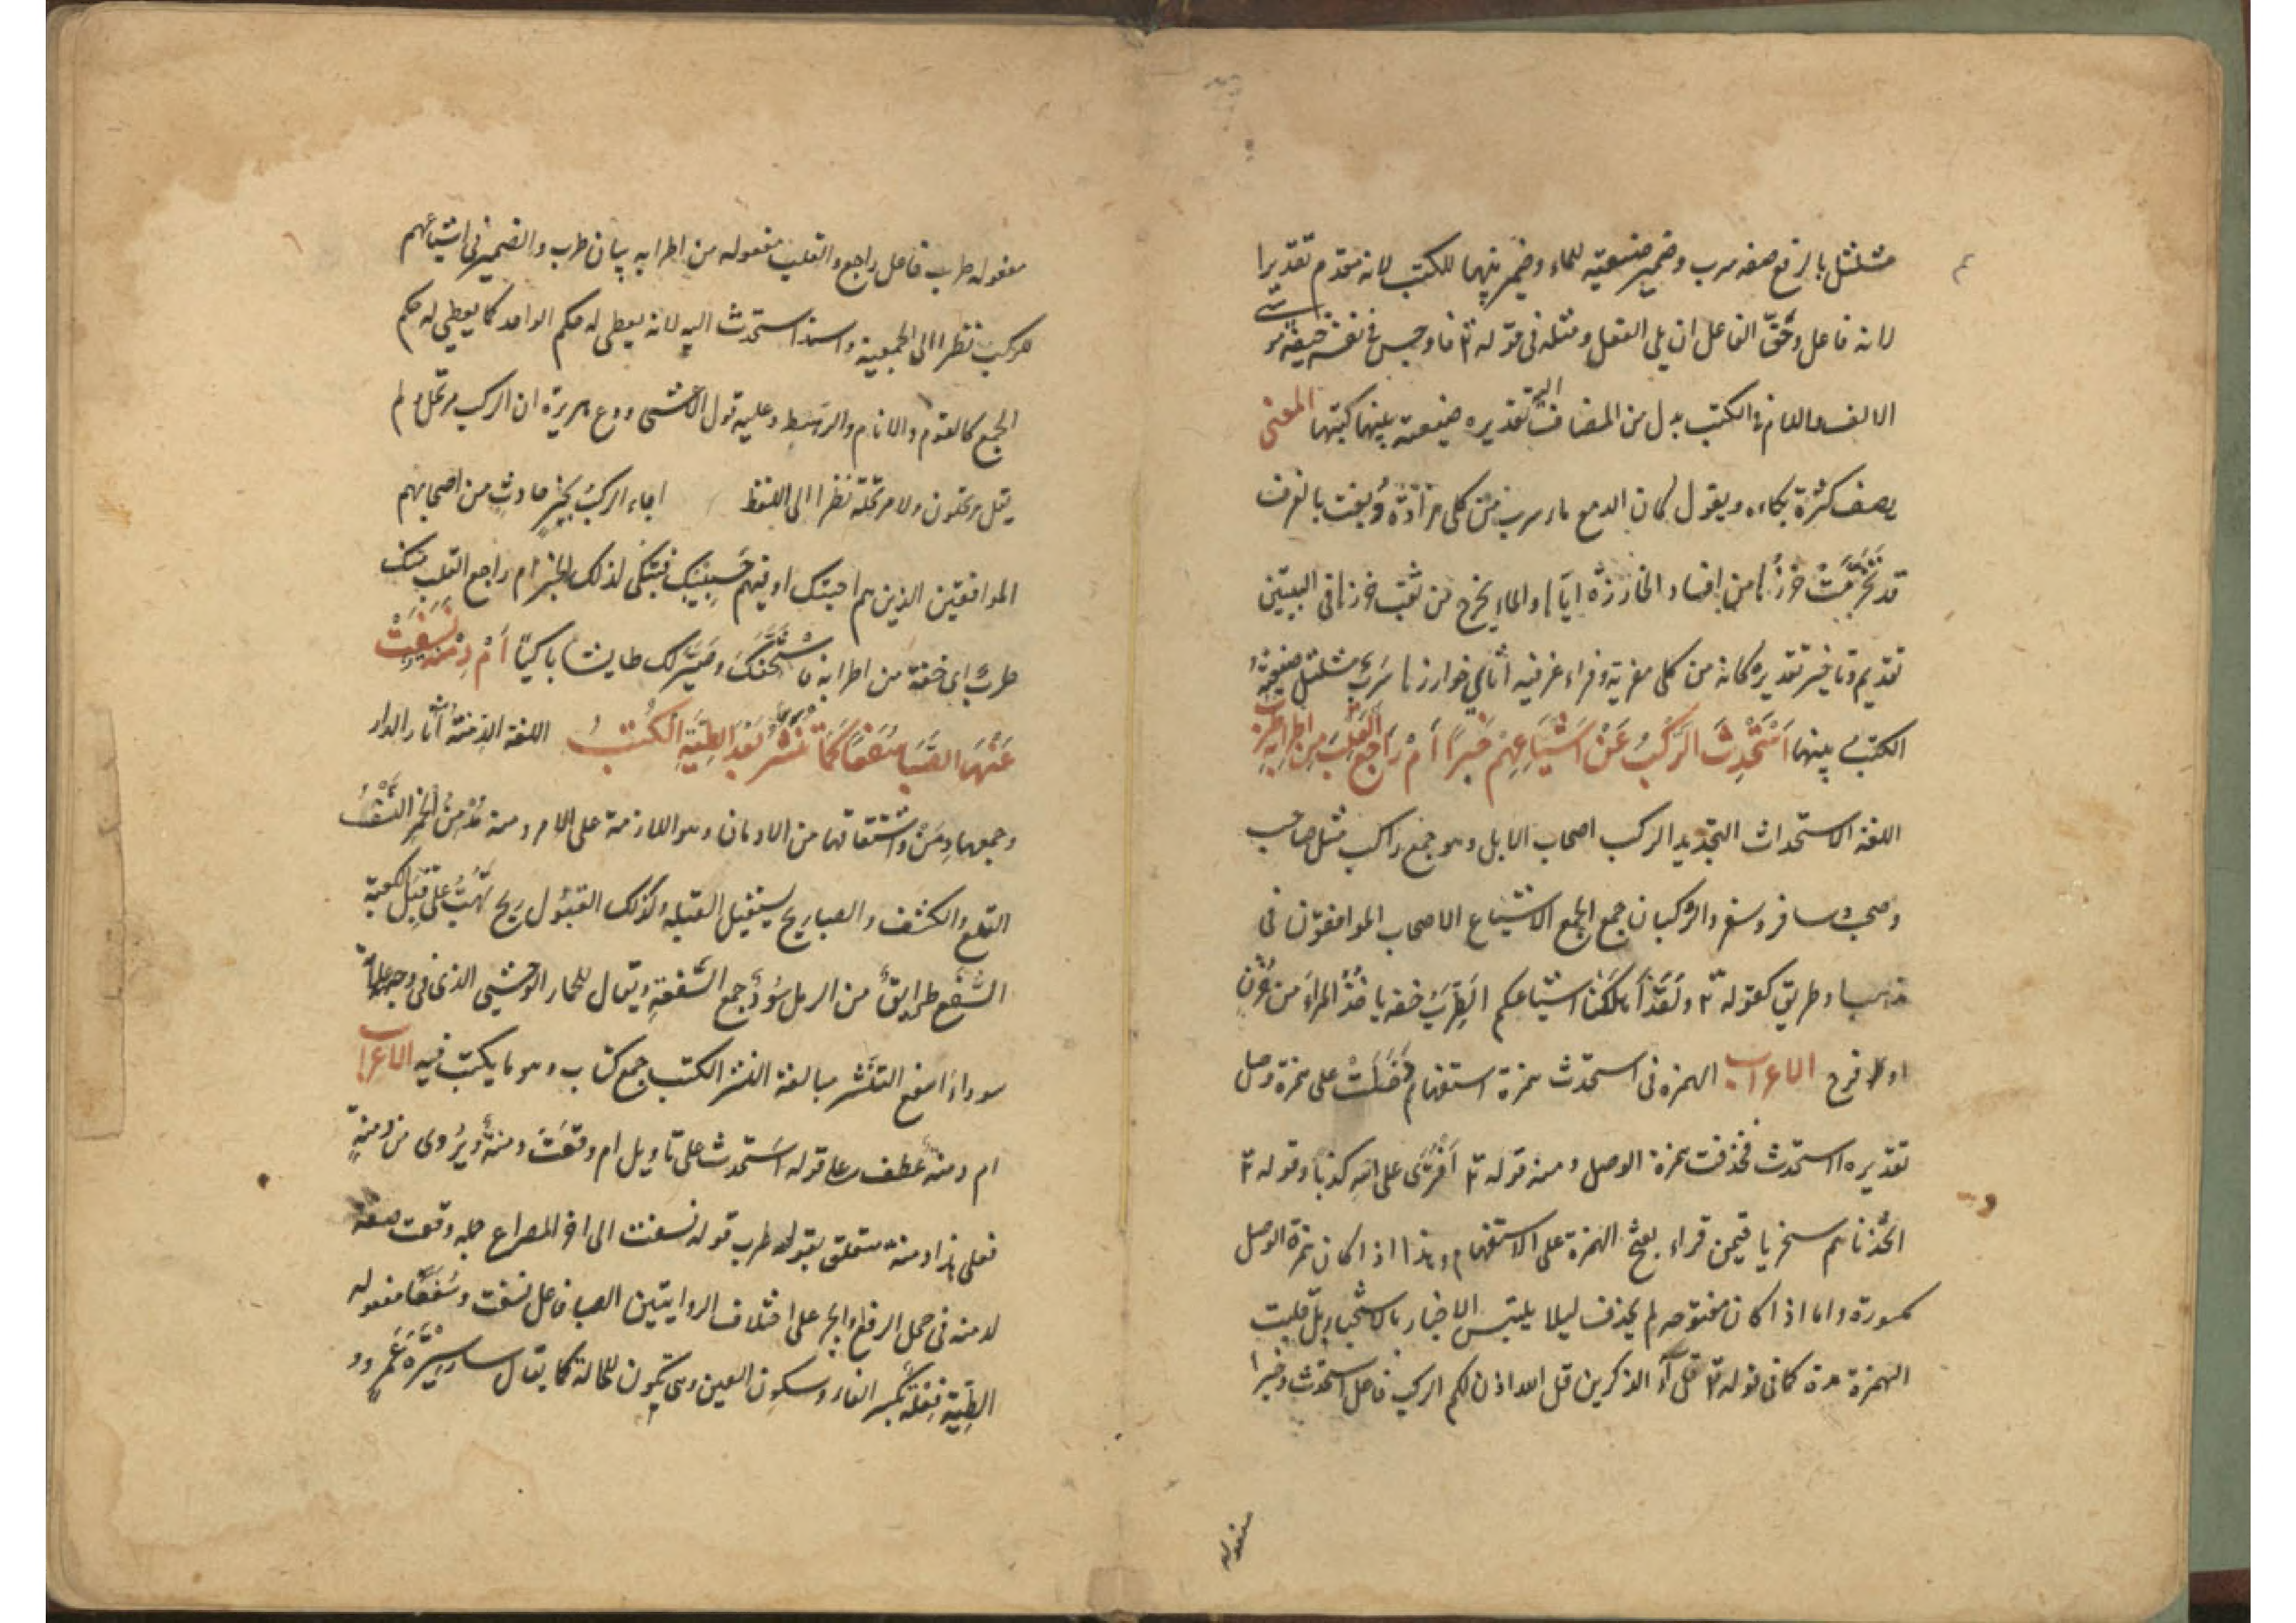 مشلشل بالرفع صفه سرب وضمير ضيعته للماء وضمير بينهما للكتب لانه مقدم تقديرا
لانه فاعل وحَقّ الفاعل ان يلى الفعل ومثله فى قوله تع فاوجس فى نفسه خيفة موسى
الالف واللام فى الكتب بدل من المضاف اليه تقديره ضيعته بينهما كتبها المعنى
يصف كثرة بكاءه ويقول كان الدمع ماء سرب من كلى مزادة دُبغت بالغرف
قد تخرّمَتْ خُرَزُها من افساد الخارزة اياها والماء يخرج من ثقب خرزها فى البيتين
تقديم وتاخير تقديره كانه من كلى مفرية وفراء غرفيه اثاى خوارزها سَرَبٌ مشلشل ضيعته
الكتب بينهما اَسْتَحْدَثَ الرَّكْبُ عَنْ اَشْيَاعِهِمْ خَبَرًا اَمْ رَاجَعَ القَلْبَ مِنْ اَطْرَابِهِ طَرَبُ
اللغة الاستحداث التجديد الركب اصحاب الابل وهو جمع راكب مثل صاحب
وصحب وسافر وسفر والركبان جمع الجمع الاشياع الاصحاب الموافقون فى
مذهب او طريق كقوله تع ولَقَدْ اَهْلَكْنَا اشياعكم الطَرَبُ خفه ياخُذُ المراَ من حُزْن
او فرح الاعراب الهمزه فى استحدث همزة استفهام دَخَلَتْ على همزة وصل
تقديره ااستحدث فحُذفت همزة الوصل ومنه قوله تع اَفْتَرَى على الله كذبا وقوله تع
اتّخذناهم سخريا فيمن قراء بفتح الهمزة على الاستفهام وهذا اذا كان همزة الوصل
مكسورة واما اذا كان مفتوحه لم يحذف ليلا يلتبس الاخبار بالاستخبار بل قلبت
الهمزة مدة كما فى قوله تع قل آء الذكرين قل الله اذن لكم الركب فاعل استحدث وخبرا
مفعوله
مفعوله طرب فاعل راجع والقلب مفعوله من اطرابه بيان طرب والضمير فى اشياعهم
للركب نظرا الى الجمعية واسند استحدث اليه لانه يعطى له حكم الواحد كما يعطى له حكم
الجمع كالقوم والانام والرهط وعليه قول الاعشى ودع هريرة ان الركب مرتحل ولم
يقل مرتحلون ولا مرتحلة نظرا الى اللفظ اجاء الركبُ بخبرٍ حادثٍ من اصحابهم
الموافقين الذين هم احبتك او فيهم حَبِيبُك فتبكى لذلك الخبر ام راجع القلب منك
طربٌ اى خفة من اطرابه فاسْتَخَفَّكَ وصَيَّرَك طايشا باكيًا اَمْ دِمْنَةٌ نَسَفَتْ
عَنْهَا الصَّبَا سُفَعًا كَمَا تُنَشَّرُ بَعْدَ الطِّيَّةِ الكُتُبُ اللغة الدّمنة آثار الدار
وجمعها دِمَنٌ واشتقاقها من الادمان وهو الملازمة على الامر ومنه مُدْمِنُ الخمر النَّسْفُ
القلع والكشف والصبا ريح يستقبل القبلة وكذلك القبُول ريح تَهُبُّ على قبل الكعبة
السُّفَع طرايقُ من الرمل سُودٌ جمع السُّفعةِ ويقال للحمار الوحشى الذى فى وجهه علامة
سوداء اسفع التنشر مبالغة النشر الكتب جمع كتاب وهو ما يكتب فيه الاعراب
ام دمنة عطف على قوله اَستحدث على تاويل ام وقَعَت دمنةٌ ويُروى من دمنةٍ
فعلى هذا دمنة متعلق بقوله طرب قوله نسفت الى اخر المصراع جمله وقعت صفة
لدمنه فى محل الرفع او الجر على اختلاف الروايتين الصبا فاعل نسفت وسُفَعًا مفعوله
الطِّيَّة فِعْلَة بكسر الفاء وسكون العين وهى تكون للحالة كما يقال سار سِيْرَةَ عُمَر وو